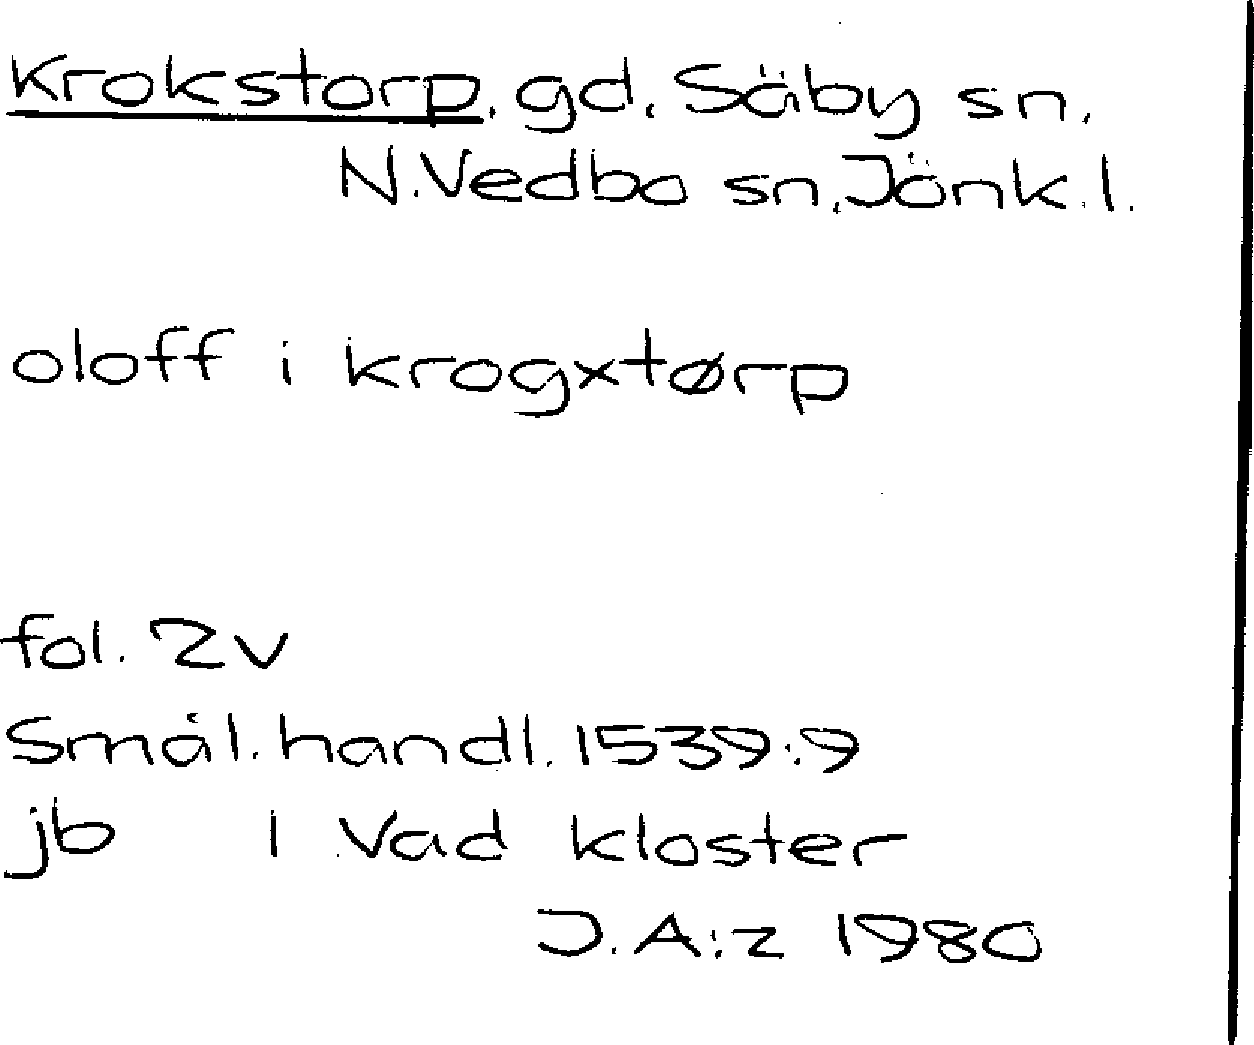 Krokstorp, gd, Säby sn,
N.Vedbo sn, Jönk.l.
oloff i krogxtørp
fol. 2v
Smål.handl. 1539:9
jb I Vad kloster
J.A:z 1980